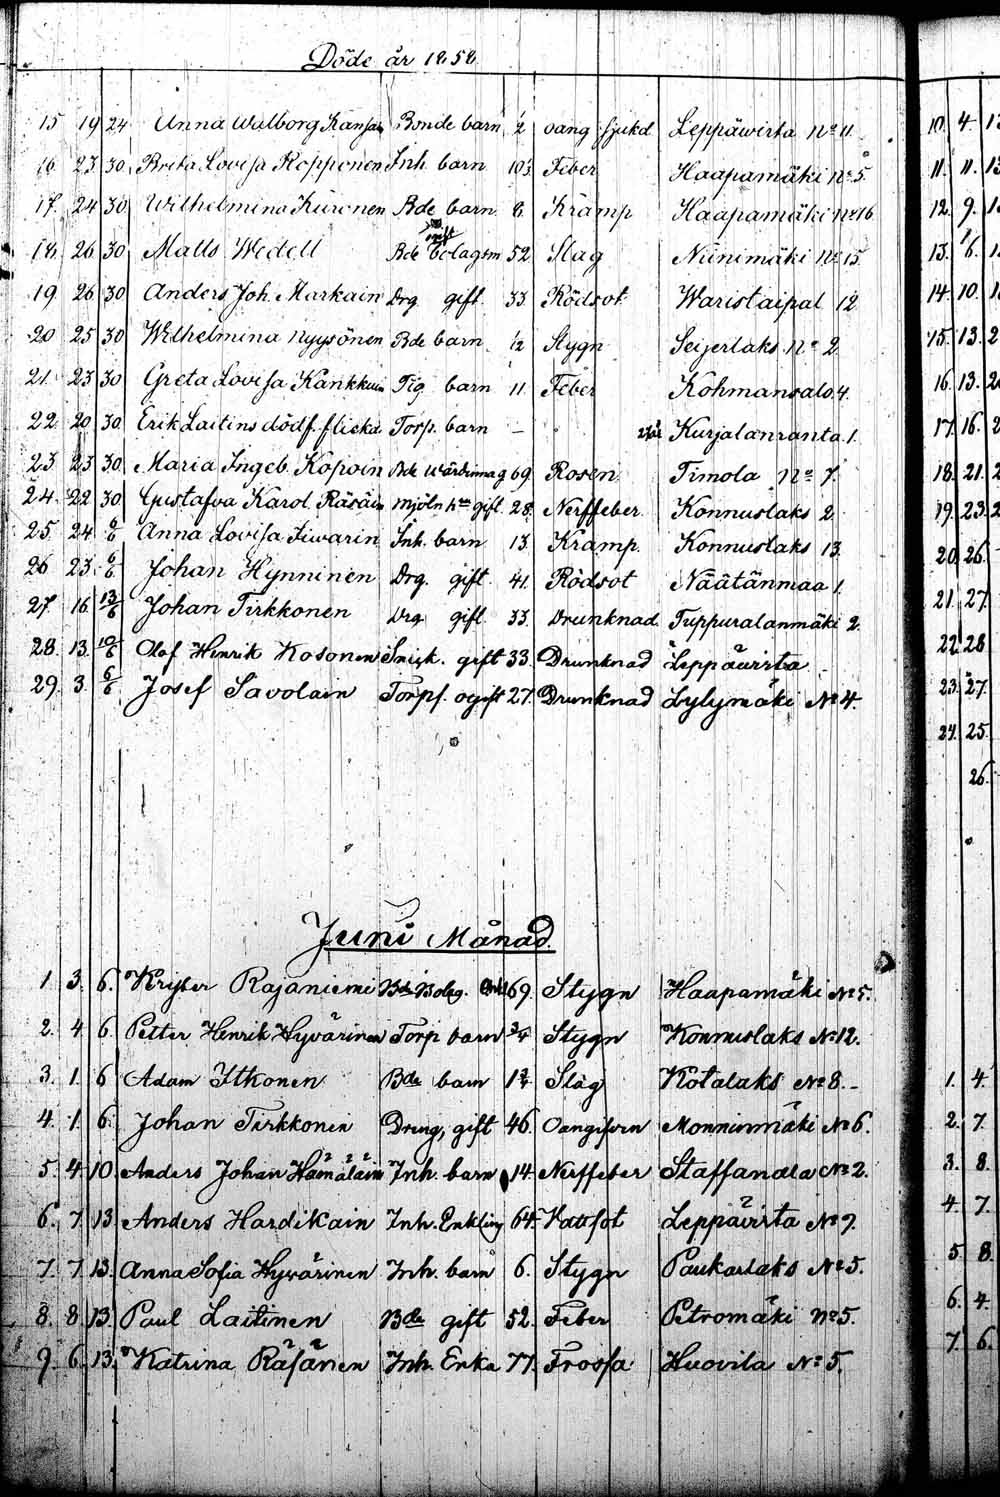 Döde år 1858
15 19 24 Anna Walborg Kansan Bonde barn 1/2 oang sjukd Leppäwirta No 11
16 23 30 Brita Lovisa Kopponen Inh. barn 10 3 Feber Haapamäki No 5
17. 24 30 Wilhelmina Kuronen Bde barn 8 Kramp Haapamäki No 16
18. 26 30 Matts Wedell Bde bolagsm 52 Slag Niinimäki No 15
19 26 30 Anders Joh. Markain Drg gift 33 Rödsot Waristaipal 12
20 25 30 Wilhelmina Nyysönen Bde barn 1/2 Stygn Seijerlaks No 2
21. 23 30 Greta Lovisa Kankkuin Tig barn 11 Feber Kohmansalo 4.
22 20 30 Erik Laitins dödf. flicka Torp. barn – Kurjalanranta 1.
23 23 30 Maria Ingeb. Kopoin Bde wärdinna g 69 Rosen Timola No 7.
24. 22 30 Gustafva Karol. Räsäin mjöln hu gift 28 Nerffeber Konnuslaks 2
25. 24 6/6 Anna Lovisa Tiwarin Inh. barn 13 Kramp Konnuslaks 13
26 23 6/6 Johan Hynninen Drg. gift 41. Rödsot Näätänmaa 1.
27 16 13/6 Johan Tirkkonen Drg gift 33. Drunknad Tuppuralanmäki 2
28. 13. 10/6 Olof Henrik Kosonen Snick. gift 33. Drunknad Leppäwirta
29. 3. 6/6 Josef Savolain Torpf. ogift 27. Drunknad Lylymäki No 4.
Juni Månad.
1 3 6. Krister Rajaniemi Bde Bolag. Enkl 69. Stygn Haapamäki No 5.
2. 4 6 Petter Henrik Hyvärinen Torp barn 3/4 Stygn Konnuslaks No 12.
3. 1. 6 Adam Itkonen Bde barn 1 3/4 Slag Kotalaks No 8. –
4. 1. 6. Johan Tirkkonen Dreng, gift 46. Oangifven Monninmäki No 6.
5. 4 10. Anders Johan Hämäläin Inh. barn 14. Nerffeber Staffandla No 2.
6. 7. 13. Anders Hardikain Inh. Enkling 64. Rödsot Leppävirta No 7.
7. 7 13. Anna Sofia Hyvärinen Inh. barn 6. Stygn Paukarlaks No 5.
8. 8 13. Paul Laitinen Bde gift 52. Feber Petromäki No 5.
9. 6. 13. Katrina Räsänen Inh. Enka 77. Frossa Huovila No 5.
10. 4.
11. 11.
12. 9.
13. 6.
14. 10.
15. 13. 2
16. 13. 2
17. 16. 2
18. 21. 2
19. 23. 2
20. 26.
21. 27.
22. 28
23. 27.
24. 25.
26.
1. 4
2. 7
3. 8.
4. 7.
5. 8
6. 4.
7. 6.